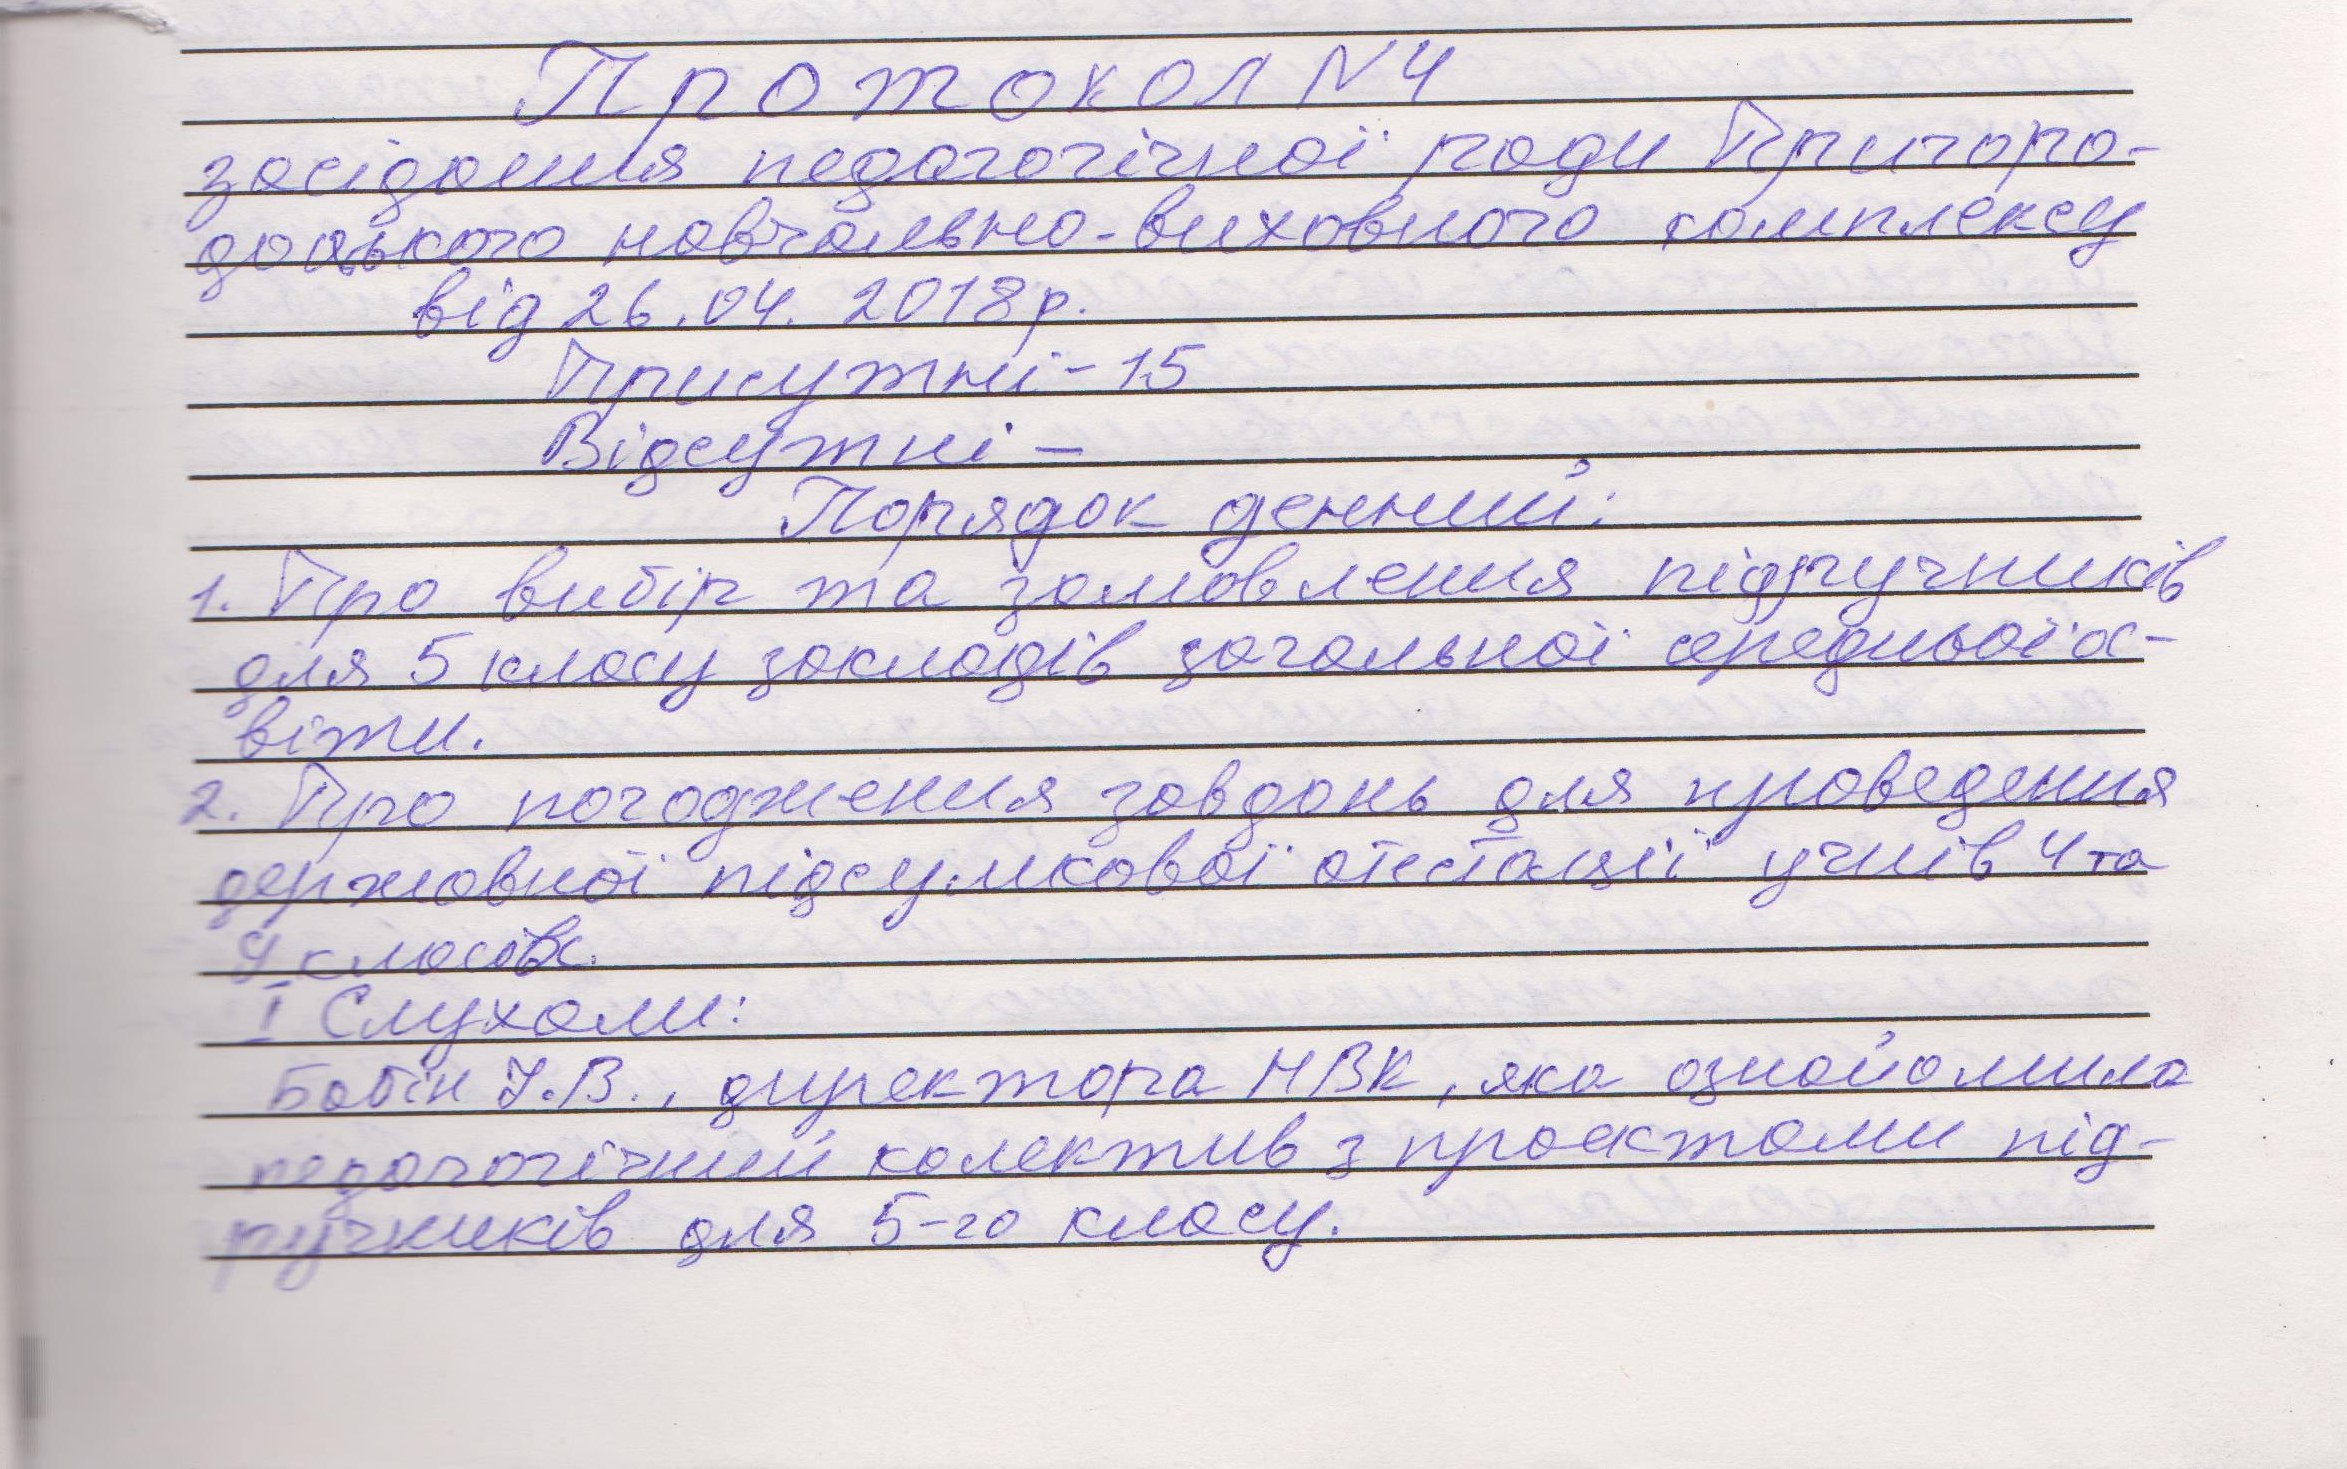 Протокол №4
засідання педагогічної ради Пригоро-
доцького навчально-виховного комплексу
від 26.04.2018р.
Присутні - 15
Відсутні -
Порядок денний:
1. Про вибір та замовлення підручників
для 5 класу закладів загальної середньої ос-
віти.
2. Про погодження завдань для проведення
державної підсумкової атестації учнів 4 та
9 класів.
I Слухали:
Бабін У.В., директора НВК, яка ознайомила
педагогічний колектив з проектами під-
ручників для 5-го класу.